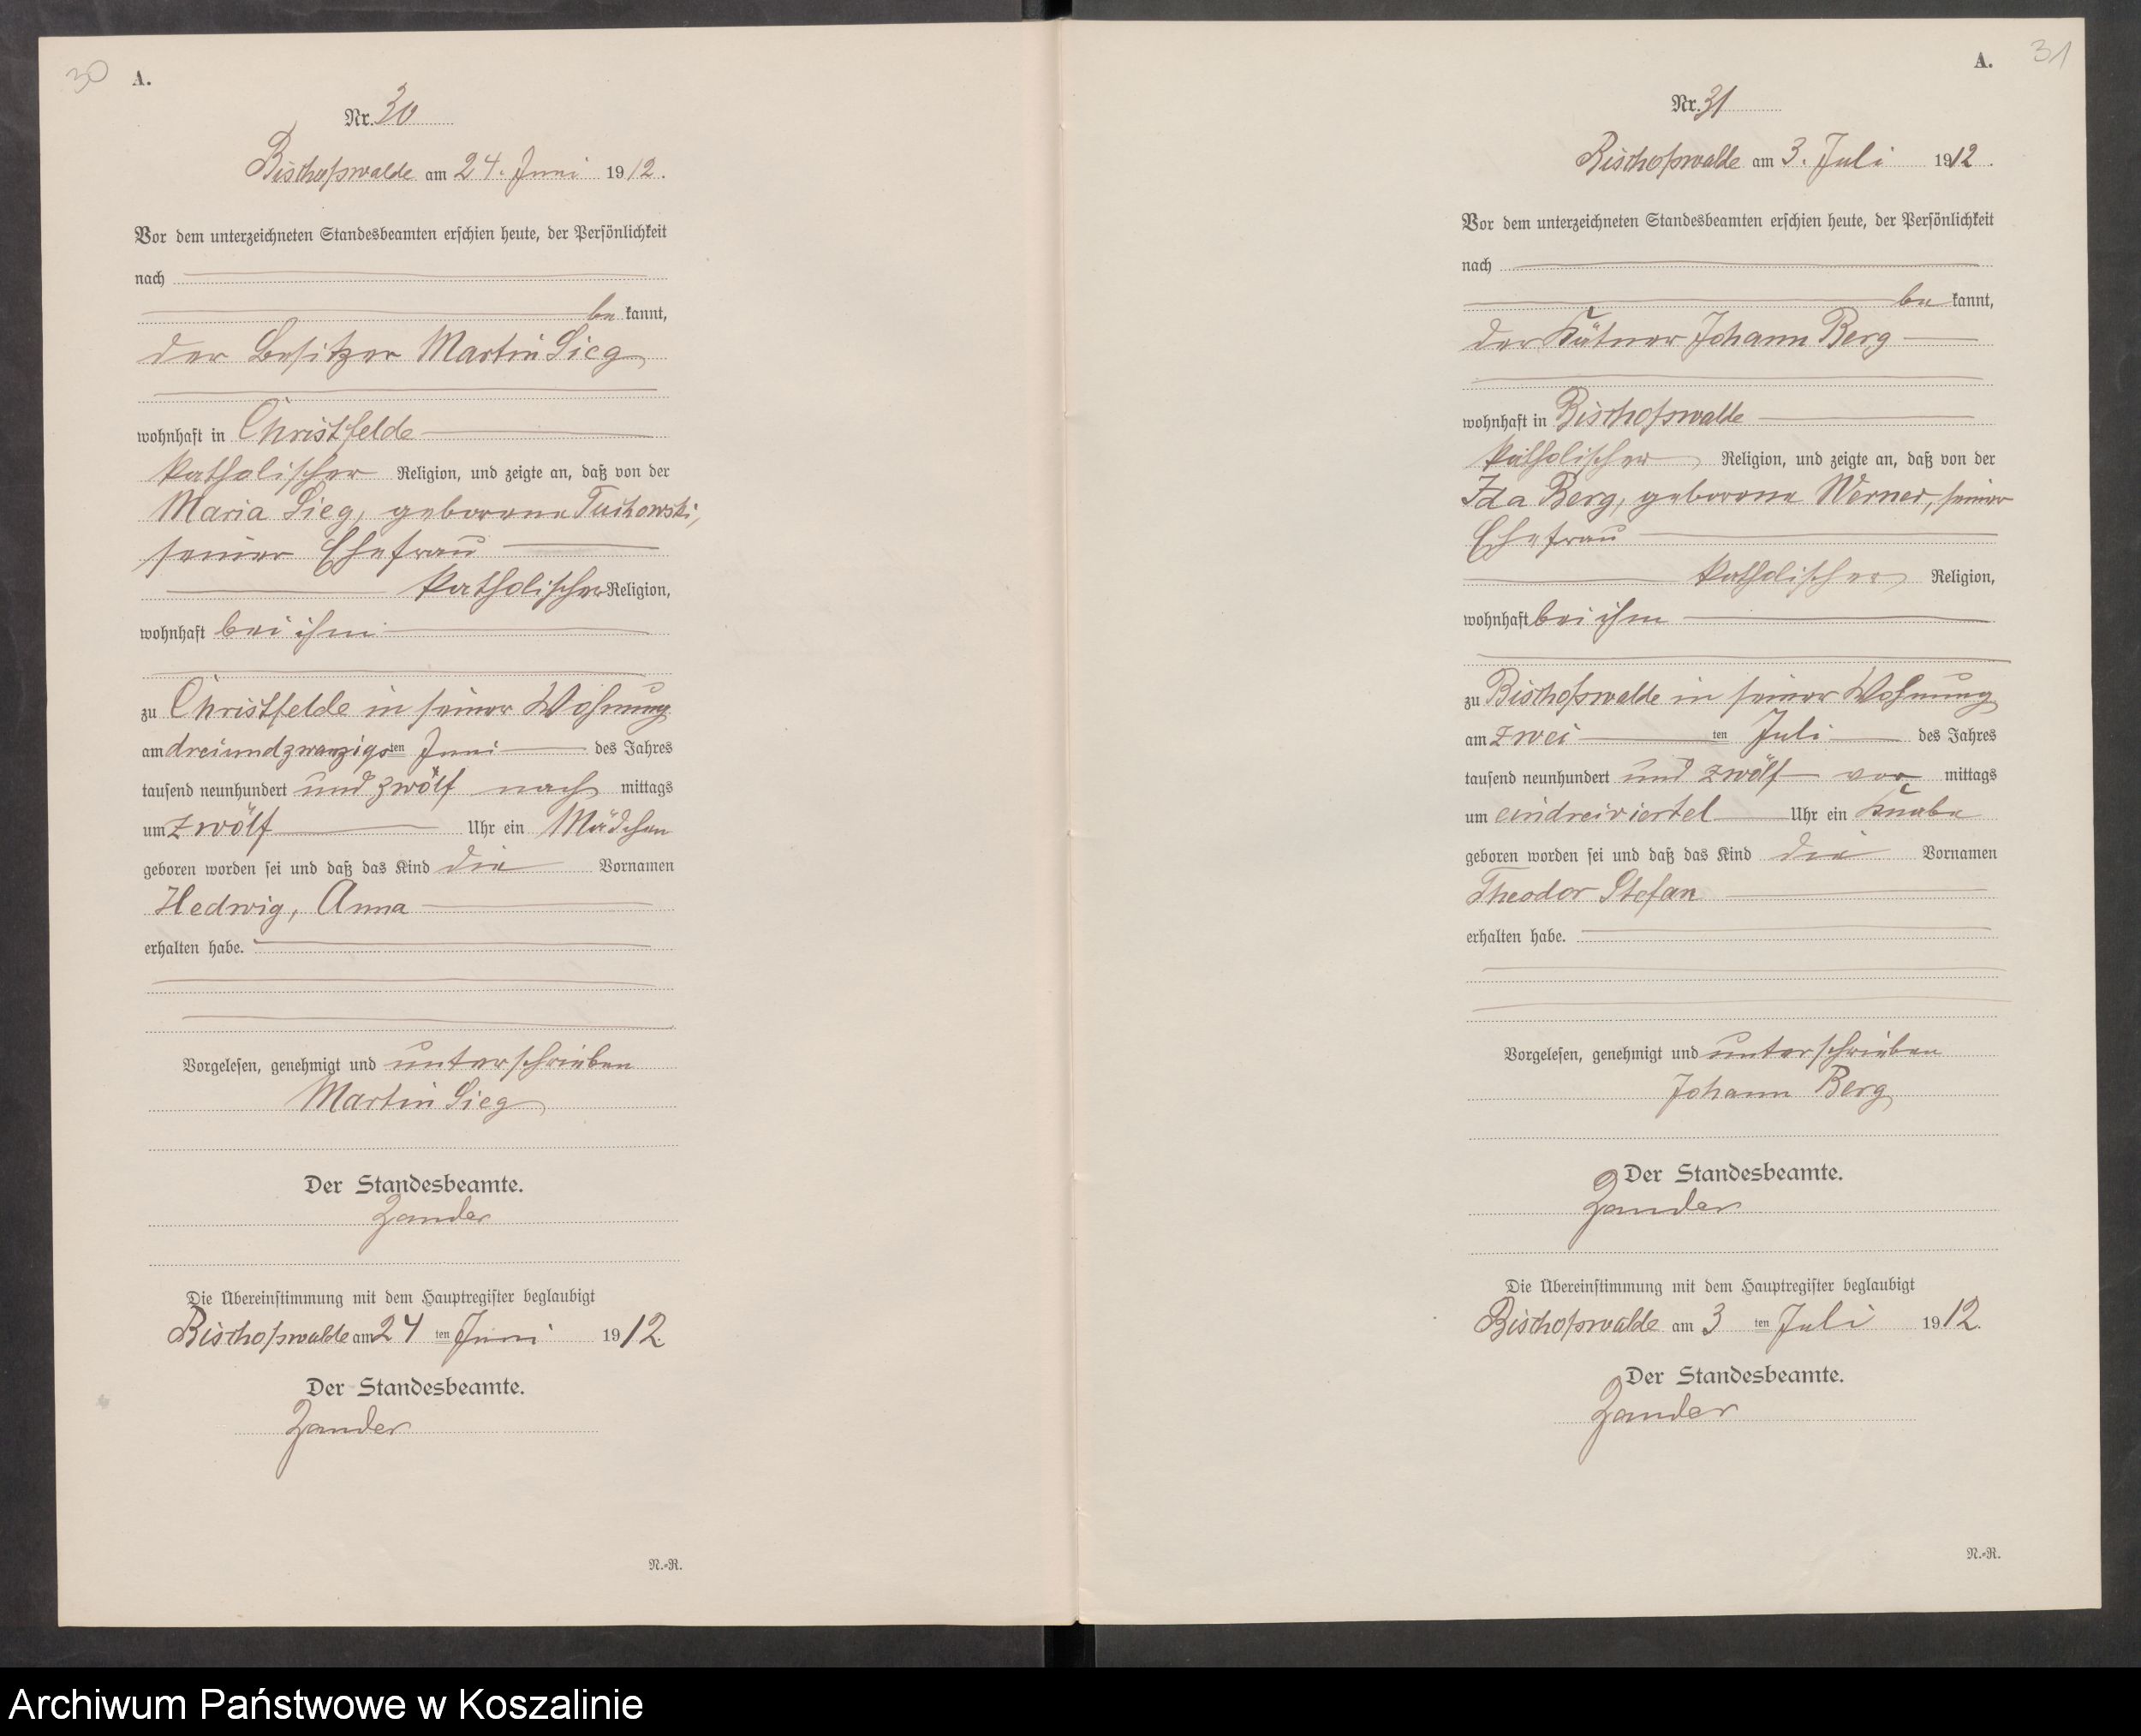 30
A.
Nr. 30
Bischofswalde am 24. Juni 1912.
Vor dem unterzeichneten Standesbeamten erschien heute, der Persönlichkeit
nach
be kannt,
der Besitzer Martin Sieg
wohnhaft in Christfelde
katholischer Religion, und zeigte an, daß von der
Maria Sieg, geborene Tuchowski,
seiner Ehefrau
katholischer Religion,
wohnhaft bei ihm
zu Christfelde in seiner Wohnung
am dreiundzwanzigsten Juni des Jahres
tausend neunhundert und zwölf nach mittags
um zwölf Uhr ein Mädchen
geboren worden sei und daß das Kind die Vornamen
Hedwig, Anna
erhalten habe.
Vorgelesen, genehmigt und unterschrieben
Martin Sieg
Der Standesbeamte.
Zander
Die Übereinstimmung mit dem Hauptregister beglaubigt
Bischofswalde am 24 ten Juni 1912.
Der Standesbeamte.
Zander
N.-R.
A.
31
Nr. 31
Bischofswalde am 3. Juli 1912.
Vor dem unterzeichneten Standesbeamten erschien heute, der Persönlichkeit
nach
be kannt,
der Kätner Johann Berg
wohnhaft in Bischofswalde
katholischer Religion, und zeigte an, daß von der
Ida Berg, geborene Werner, seiner
Ehefrau
katholischer Religion,
wohnhaft bei ihm
zu Bischofswalde in seiner Wohnung
am zwei ten Juli des Jahres
tausend neunhundert und zwölf vor mittags
um eindreiviertel Uhr ein Knabe
geboren worden sei und daß das Kind die Vornamen
Theodor Stefan
erhalten habe.
Vorgelesen, genehmigt und unterschrieben
Johann Berg
Der Standesbeamte.
Zander
Die Übereinstimmung mit dem Hauptregister beglaubigt
Bischofswalde am 3 ten Juli 1912.
Der Standesbeamte.
Zander
N.-R.
Archiwum Państwowe w Koszalinie